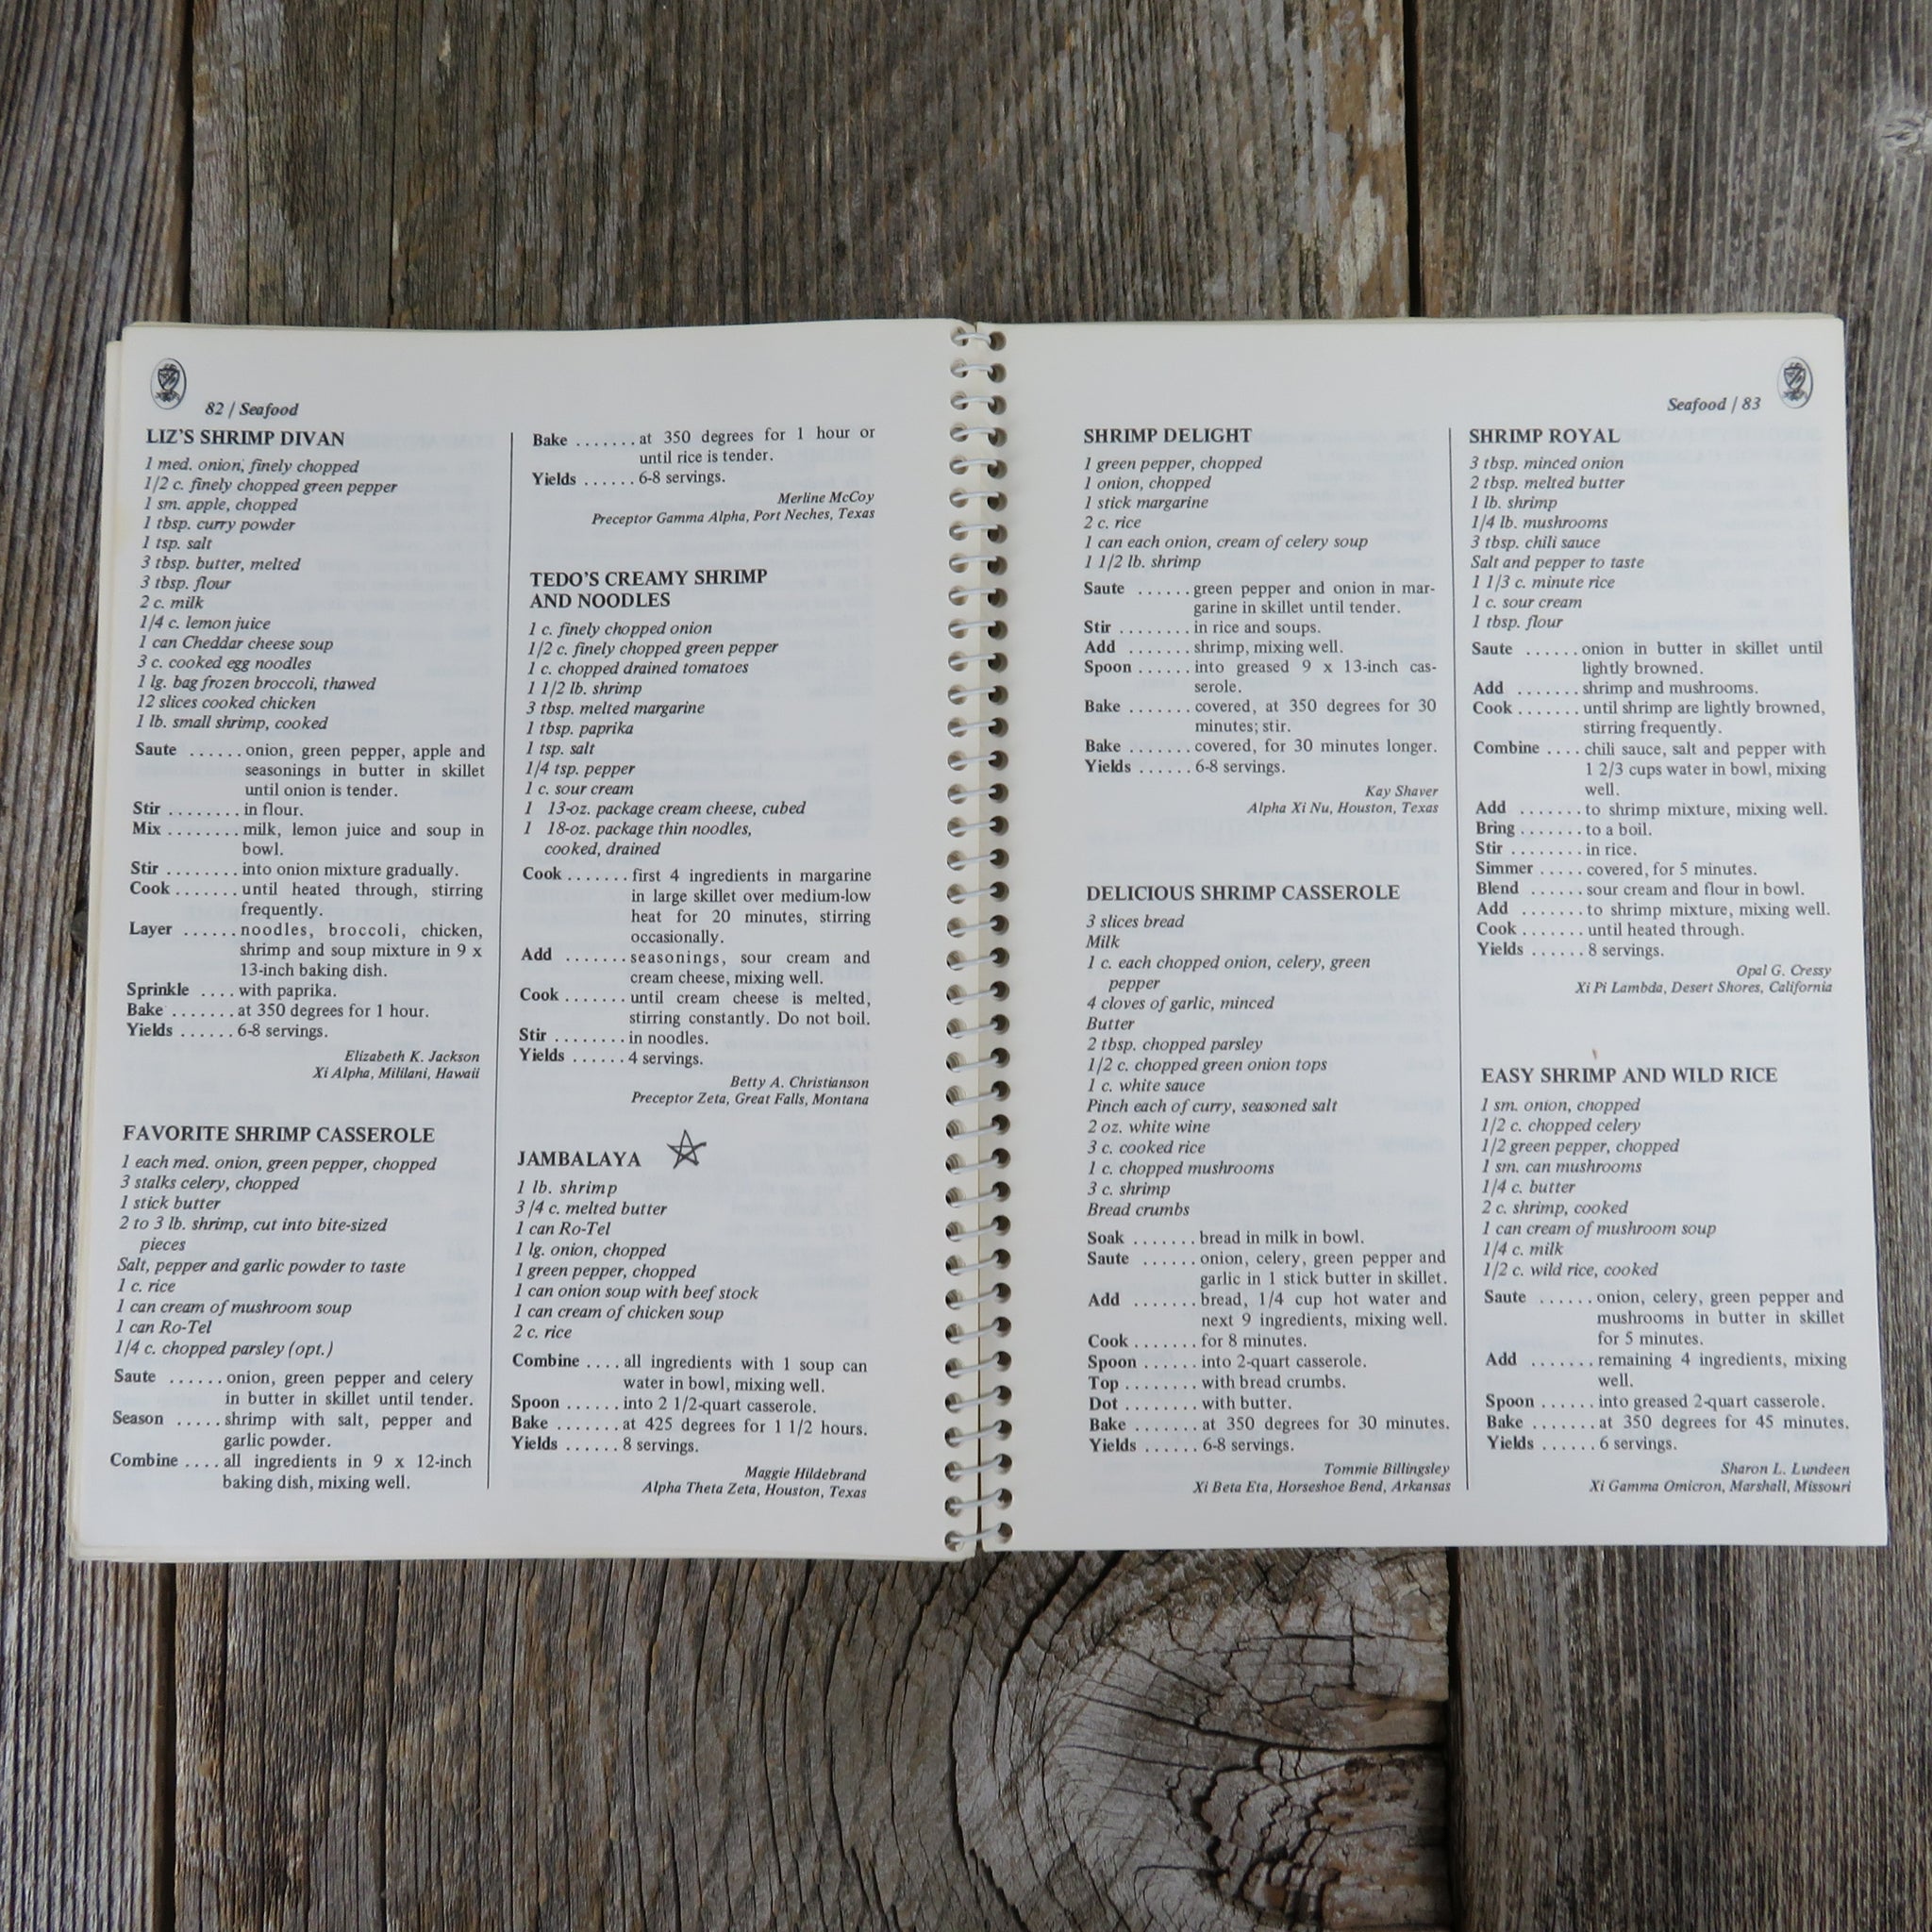 82 / Seafood
LIZ'S SHRIMP DIVAN
1 med. onion, finely chopped
1/2 c. finely chopped green pepper
1 sm. apple, chopped
1 tbsp. curry powder
1 tsp. salt
3 tbsp. butter, melted
3 tbsp. flour
2 c. milk
1/4 c. lemon juice
1 can Cheddar cheese soup
3 c. cooked egg noodles
1 lg. bag frozen broccoli, thawed
12 slices cooked chicken
1 lb. small shrimp, cooked
Saute ......onion, green pepper, apple and
seasonings in butter in skillet
until onion is tender.
Stir ........in flour.
Mix ........milk, lemon juice and soup in
bowl.
Stir ........into onion mixture gradually.
Cook .......until heated through, stirring
frequently.
Layer ......noodles, broccoli, chicken,
shrimp and soup mixture in 9 x
13-inch baking dish.
Sprinkle ....with paprika.
Bake .......at 350 degrees for 1 hour.
Yields ......6-8 servings.
Elizabeth K. Jackson
Xi Alpha, Mililani, Hawaii
FAVORITE SHRIMP CASSEROLE
1 each med. onion, green pepper, chopped
3 stalks celery, chopped
1 stick butter
2 to 3 lb. shrimp, cut into bite-sized
pieces
Salt, pepper and garlic powder to taste
1 c. rice
1 can cream of mushroom soup
1 can Ro-Tel
1/4 c. chopped parsley (opt.)
Saute ......onion, green pepper and celery
in butter in skillet until tender.
Season .....shrimp with salt, pepper and
garlic powder.
Combine ....all ingredients in 9 x 12-inch
baking dish, mixing well.
Bake .......at 350 degrees for 1 hour or
until rice is tender.
Yields ......6-8 servings.
Merline McCoy
Preceptor Gamma Alpha, Port Neches, Texas
TEDO'S CREAMY SHRIMP
AND NOODLES
1 c. finely chopped onion
1/2 c. finely chopped green pepper
1 c. chopped drained tomatoes
1 1/2 lb. shrimp
3 tbsp. melted margarine
1 tbsp. paprika
1 tsp. salt
1/4 tsp. pepper
1 c. sour cream
1 13-oz. package cream cheese, cubed
1 18-oz. package thin noodles,
cooked, drained
Cook .......first 4 ingredients in margarine
in large skillet over medium-low
heat for 20 minutes, stirring
occasionally.
Add .......seasonings, sour cream and
cream cheese, mixing well.
Cook .......until cream cheese is melted,
stirring constantly. Do not boil.
Stir ........in noodles.
Yields ......4 servings.
Betty A. Christianson
Preceptor Zeta, Great Falls, Montana
JAMBALAYA
1 lb. shrimp
3/4 c. melted butter
1 can Ro-Tel
1 lg. onion, chopped
1 green pepper, chopped
1 can onion soup with beef stock
1 can cream of chicken soup
2 c. rice
Combine ....all ingredients with 1 soup can
water in bowl, mixing well.
Spoon ......into 2 1/2-quart casserole.
Bake .......at 425 degrees for 1 1/2 hours.
Yields ......8 servings.
Maggie Hildebrand
Alpha Theta Zeta, Houston, Texas
Seafood / 83
SHRIMP DELIGHT
1 green pepper, chopped
1 onion, chopped
1 stick margarine
2 c. rice
1 can each onion, cream of celery soup
1 1/2 lb. shrimp
Saute ......green pepper and onion in mar-
garine in skillet until tender.
Stir ........in rice and soups.
Add .......shrimp, mixing well.
Spoon ......into greased 9 x 13-inch cas-
serole.
Bake .......covered, at 350 degrees for 30
minutes; stir.
Bake .......covered, for 30 minutes longer.
Yields ......6-8 servings.
Kay Shaver
Alpha Xi Nu, Houston, Texas
DELICIOUS SHRIMP CASSEROLE
3 slices bread
Milk
1 c. each chopped onion, celery, green
pepper
4 cloves of garlic, minced
Butter
2 tbsp. chopped parsley
1/2 c. chopped green onion tops
1 c. white sauce
Pinch each of curry, seasoned salt
2 oz. white wine
3 c. cooked rice
1 c. chopped mushrooms
3 c. shrimp
Bread crumbs
Soak .......bread in milk in bowl.
Saute ......onion, celery, green pepper and
garlic in 1 stick butter in skillet.
Add .......bread, 1/4 cup hot water and
next 9 ingredients, mixing well.
Cook .......for 8 minutes.
Spoon ......into 2-quart casserole.
Top ........with bread crumbs.
Dot ........with butter.
Bake .......at 350 degrees for 30 minutes.
Yields ......6-8 servings.
Tommie Billingsley
Xi Beta Eta, Horseshoe Bend, Arkansas
SHRIMP ROYAL
3 tbsp. minced onion
2 tbsp. melted butter
1 lb. shrimp
1/4 lb. mushrooms
3 tbsp. chili sauce
Salt and pepper to taste
1 1/3 c. minute rice
1 c. sour cream
1 tbsp. flour
Saute ......onion in butter in skillet until
lightly browned.
Add .......shrimp and mushrooms.
Cook .......until shrimp are lightly browned,
stirring frequently.
Combine ....chili sauce, salt and pepper with
1 2/3 cups water in bowl, mixing
well.
Add .......to shrimp mixture, mixing well.
Bring .......to a boil.
Stir ........in rice.
Simmer .....covered, for 5 minutes.
Blend ......sour cream and flour in bowl.
Add .......to shrimp mixture, mixing well.
Cook .......until heated through.
Yields ......8 servings.
Opal G. Cressy
Xi Pi Lambda, Desert Shores, California
EASY SHRIMP AND WILD RICE
1 sm. onion, chopped
1/2 c. chopped celery
1/2 green pepper, chopped
1 sm. can mushrooms
1/4 c. butter
2 c. shrimp, cooked
1 can cream of mushroom soup
1/4 c. milk
1/2 c. wild rice, cooked
Saute ......onion, celery, green pepper and
mushrooms in butter in skillet
for 5 minutes.
Add .......remaining 4 ingredients, mixing
well.
Spoon ......into greased 2-quart casserole.
Bake .......at 350 degrees for 45 minutes.
Yields ......6 servings.
Sharon L. Lundeen
Xi Gamma Omicron, Marshall, Missouri